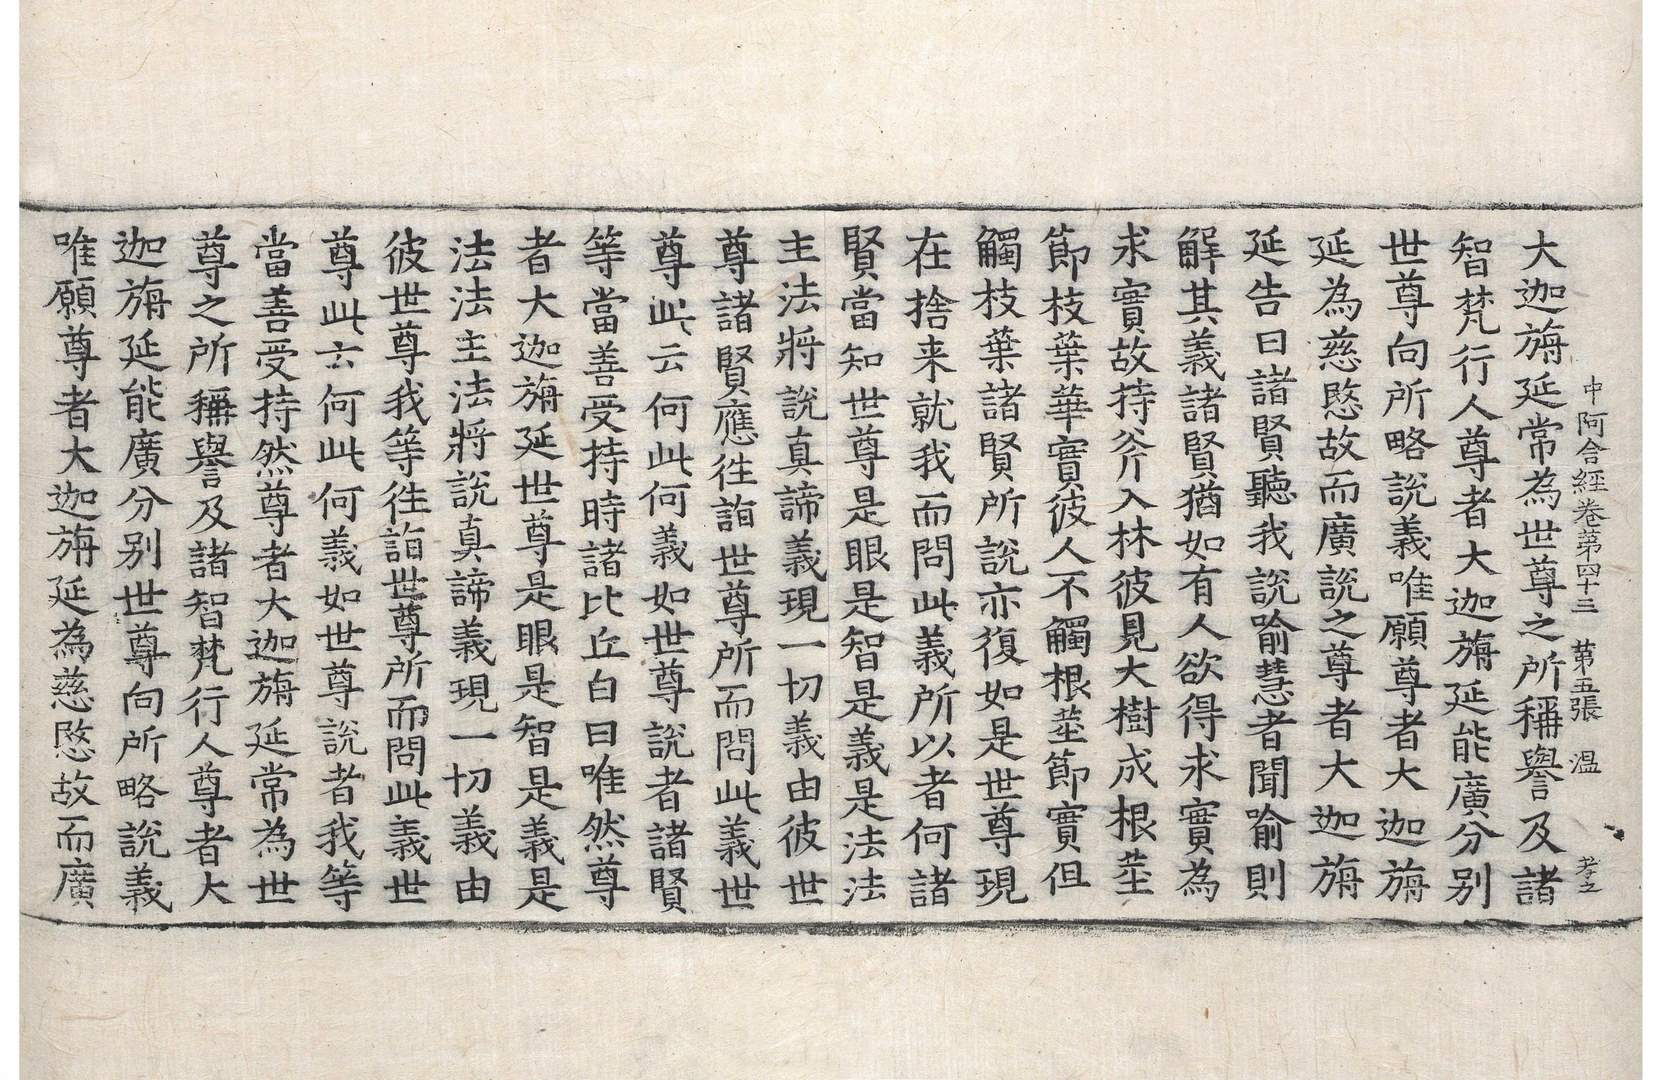 中阿含經卷第四十三 第五張 溫
大迦旃延常為世尊之所稱譽及諸
智梵行人尊者大迦旃延能廣分别
世尊向所略說義唯願尊者大迦旃
延為慈愍故而廣說之尊者大迦旃
延告曰諸賢聽我說喻慧者聞喻則
解其義諸賢猶如有人欲得求實為
求實故持斧入林彼見大樹成根莖
節枝葉華實彼人不觸根莖節實但
觸枝葉諸賢所說亦復如是世尊現
在捨来就我而問此義所以者何諸
賢當知世尊是眼是智是義是法法
主法將說真諦義現一切義由彼世
尊諸賢應往詣世尊所而問此義世
尊此云何此何義如世尊說者諸賢
等當善受持時諸比丘白曰唯然尊
者大迦旃延世尊是眼是智是義是
法法主法將說真諦義現一切義由
彼世尊我等往詣世尊所而問此義世
尊此云何此何義如世尊說者我等
當善受持然尊者大迦旃延常為世
尊之所稱譽及諸智梵行人尊者大
迦旃延能廣分别世尊向所略說義
唯願尊者大迦旃延為慈愍故而廣